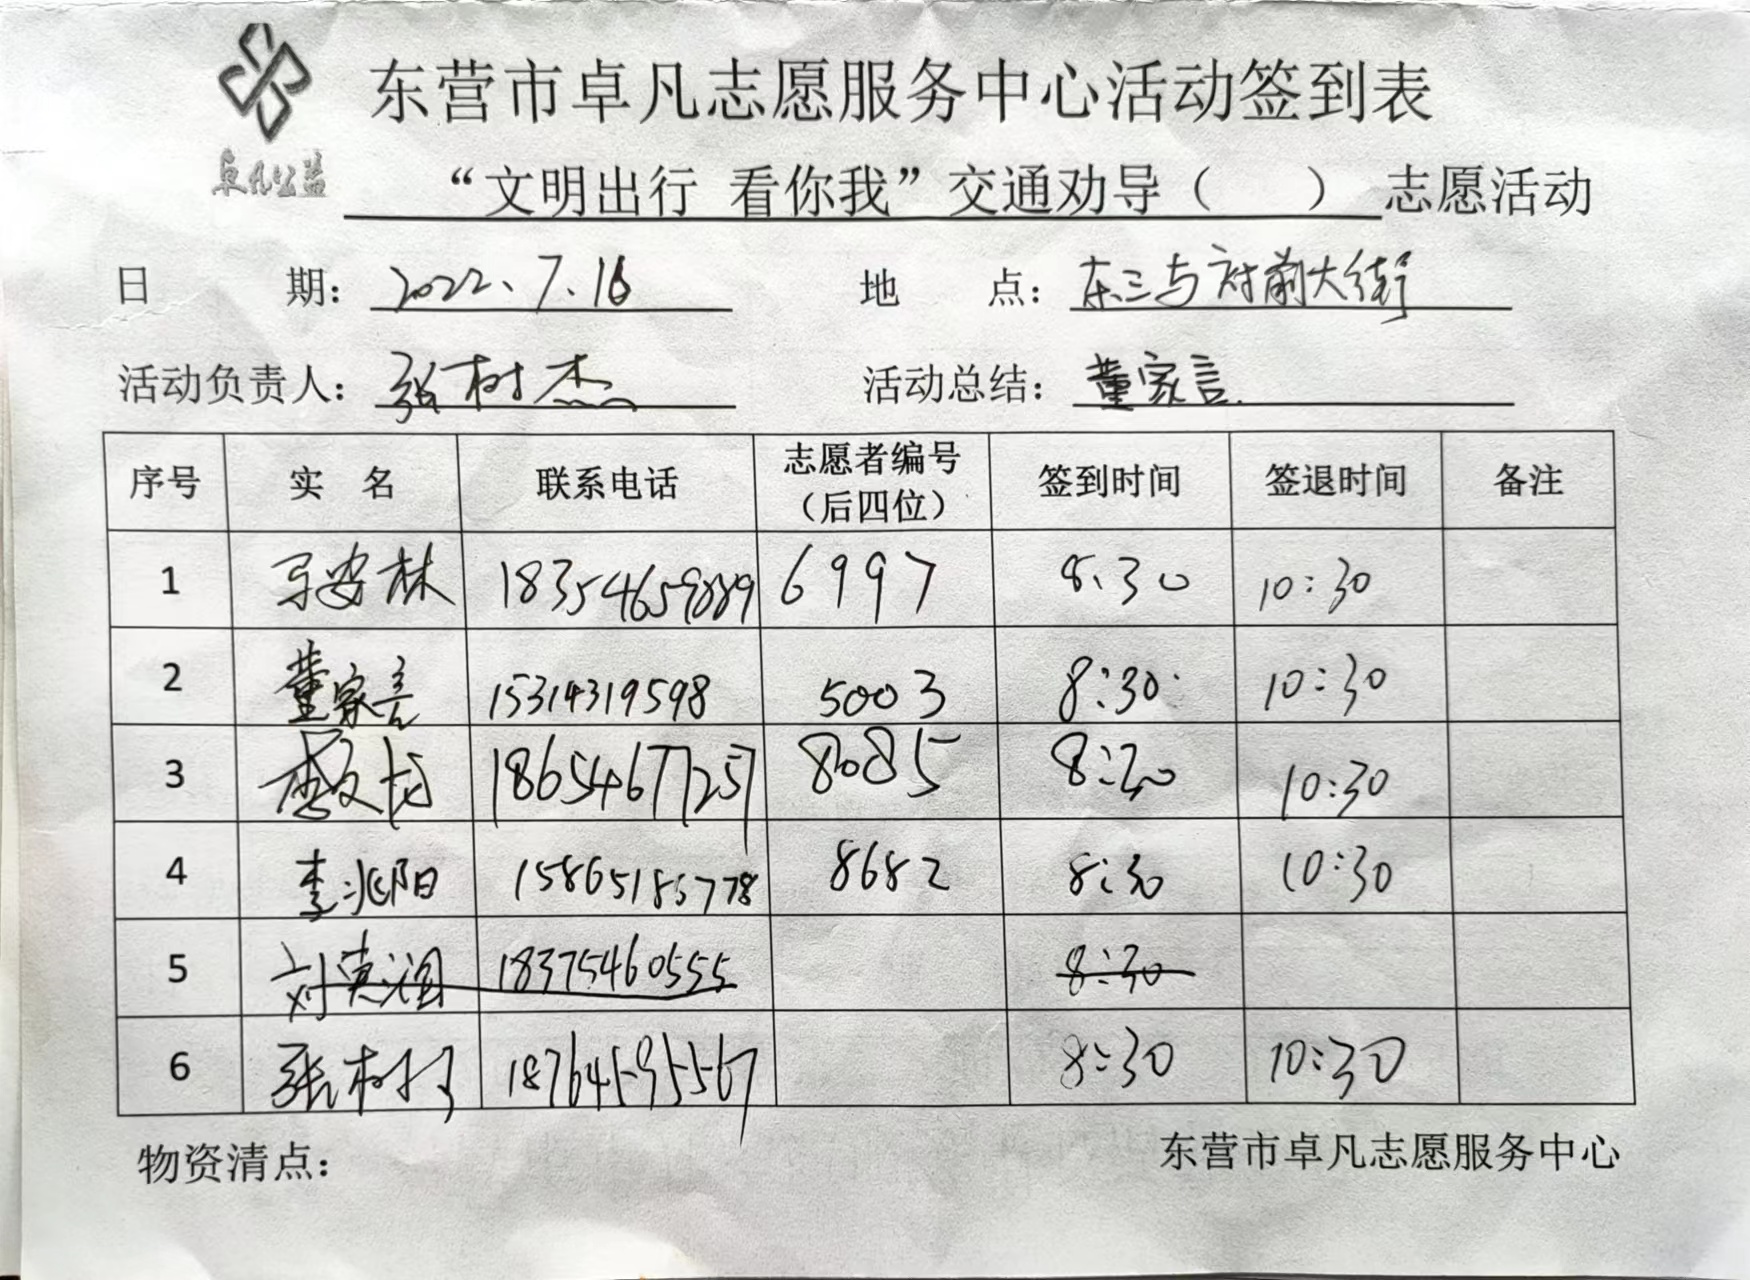 东营市卓凡志愿服务中心活动签到表
卓凡公益
“文明出行 看你我”交通劝导（ ） 志愿活动
日 期： 2022、7.16 地 点： 东三与府前大街
活动负责人： 张树杰 活动总结： 董家言
序号 实 名 联系电话 志愿者编号（后四位） 签到时间 签退时间 备注
1 安林 18354659889 6997 8:30 10:30
2 董家言 15314319598 5003 8:30 10:30
3 文龙 18654677257 8085 8:30 10:30
4 李兆阳 15865185778 8682 8:30 10:30
5 刘 18375460555 8:30
6 张树 18764595567 8:30 10:30
物资清点： 东营市卓凡志愿服务中心